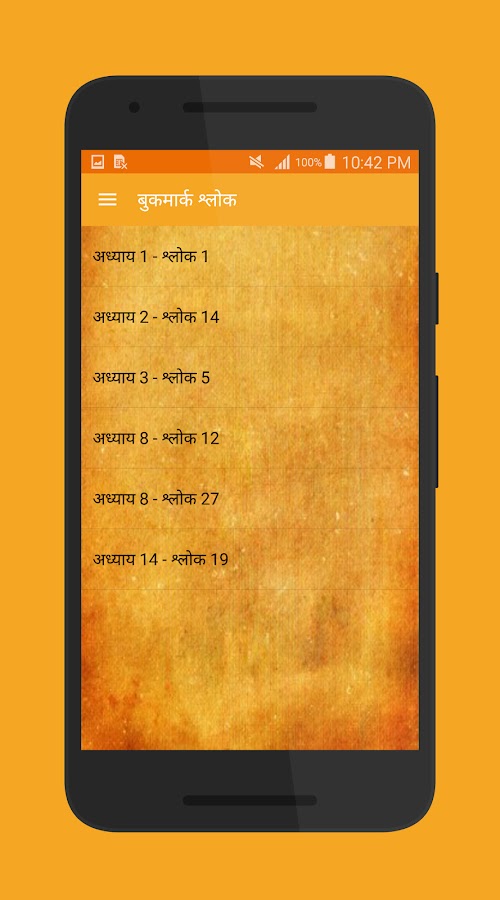 100% 10:42 PM
बुकमार्क श्लोक
अध्याय 1 - श्लोक 1
अध्याय 2 - श्लोक 14
अध्याय 3 - श्लोक 5
अध्याय 8 - श्लोक 12
अध्याय 8 - श्लोक 27
अध्याय 14 - श्लोक 19